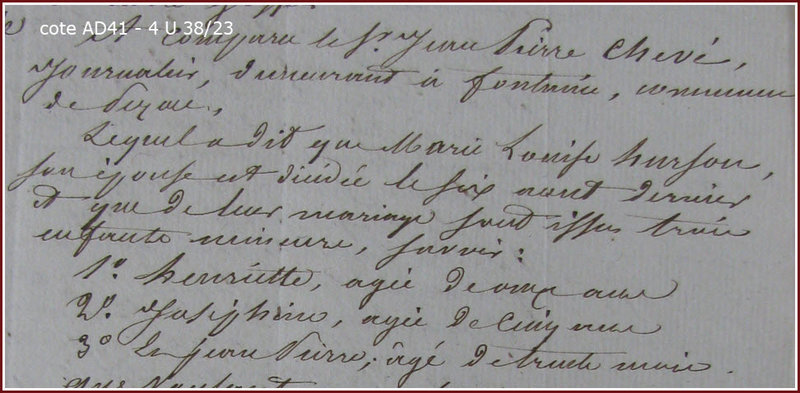 cote AD41 - 4 U 38/23
A comparu le Sr Jean Pierre Chevé,
Journalier, demeurant à fontaine, commune
de Pezou.,
Lequel a dit que Marie Louise hurson,
son épouse est décédée le six aout dernier
et que de leur mariage sont issus trois
enfants mineurs, savoir:
1º henriette, agée de onze ans
2º. Joséphine, agée de Cinq ans
3º Jean Pierre, âgé de trente mois.
que